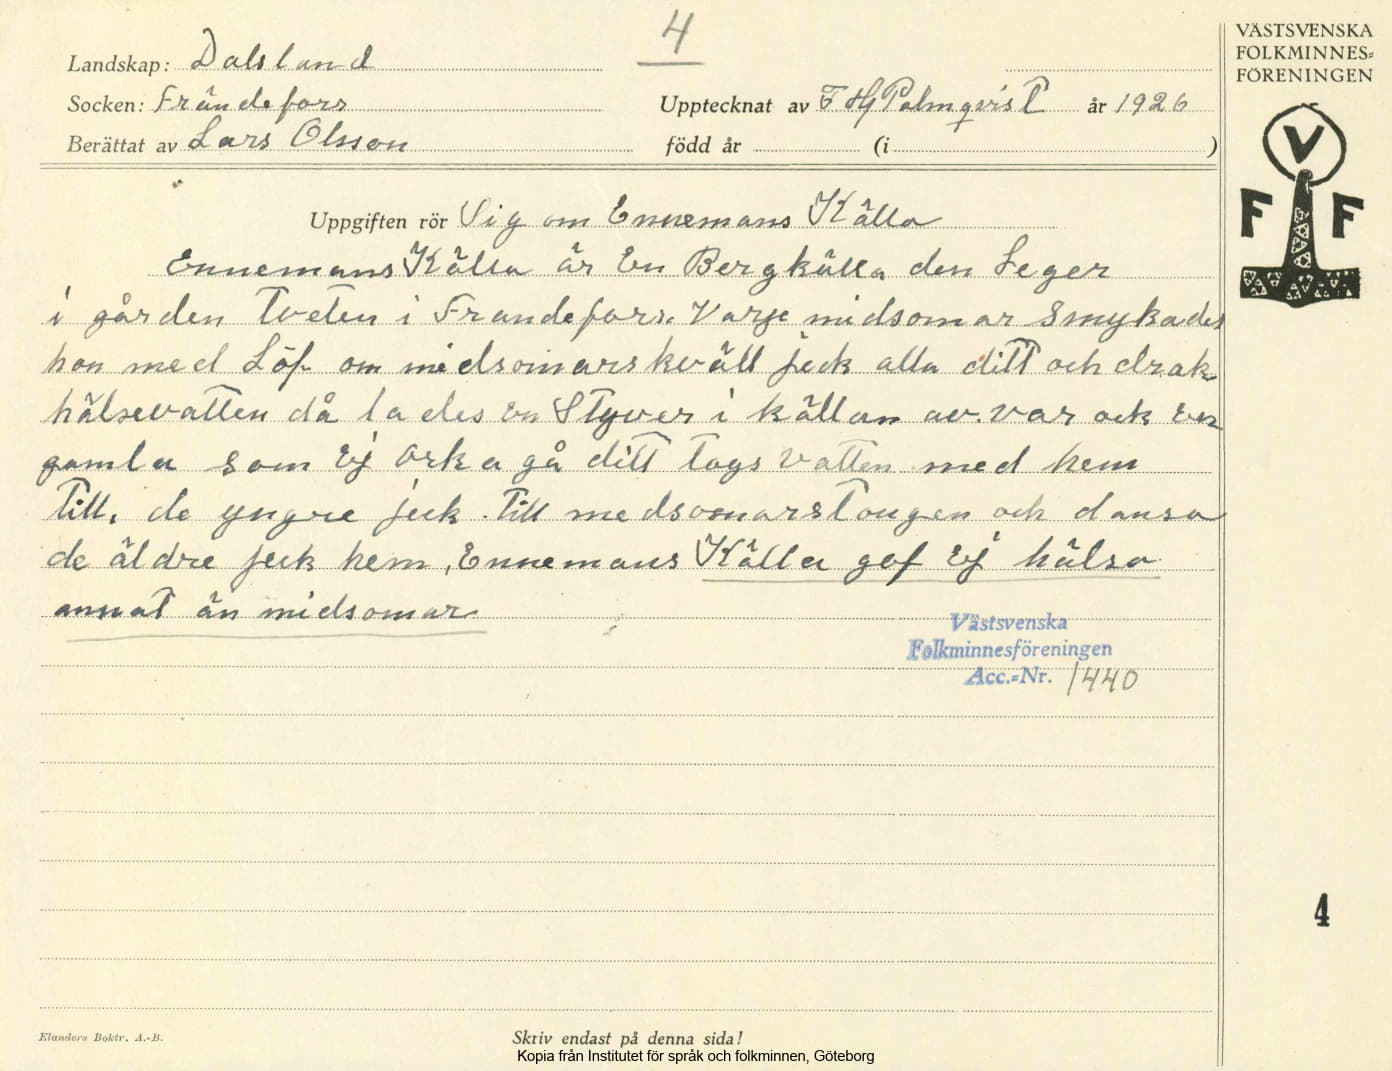 4
VÄSTSVENSKA
FOLKMINNES=
FÖRENINGEN
Landskap: Dalsland
Socken: Frändefors
Upptecknat av F Hj Palmqvist år 1926
Berättat av Lars Olsson född år (i )
V
F F
Uppgiften rör Sig om Ennemans Källa
Ennemans Källa är En Bergkälla den Leger
i gården Tveten i Frandefors. Varje midsomar Smykades
hon med Löf om midsomarskväll jeck alla ditt och drak
hälsevatten då lades en Styver i källan av. var ock en
gamla som Ej orka gå ditt togs vatten med hem
Till, de yngre jeck Till medsomarstongen och dansa
de äldre jeck hem, Ennemans Källa gef Ej hälsa
annat än midsomar
Västsvenska
Folkminnesföreningen
Acc.=Nr. 1440
4
Elanders Boktr. A.-B.
Skriv endast på denna sida!
Kopia från Institutet för språk och folkminnen, Göteborg